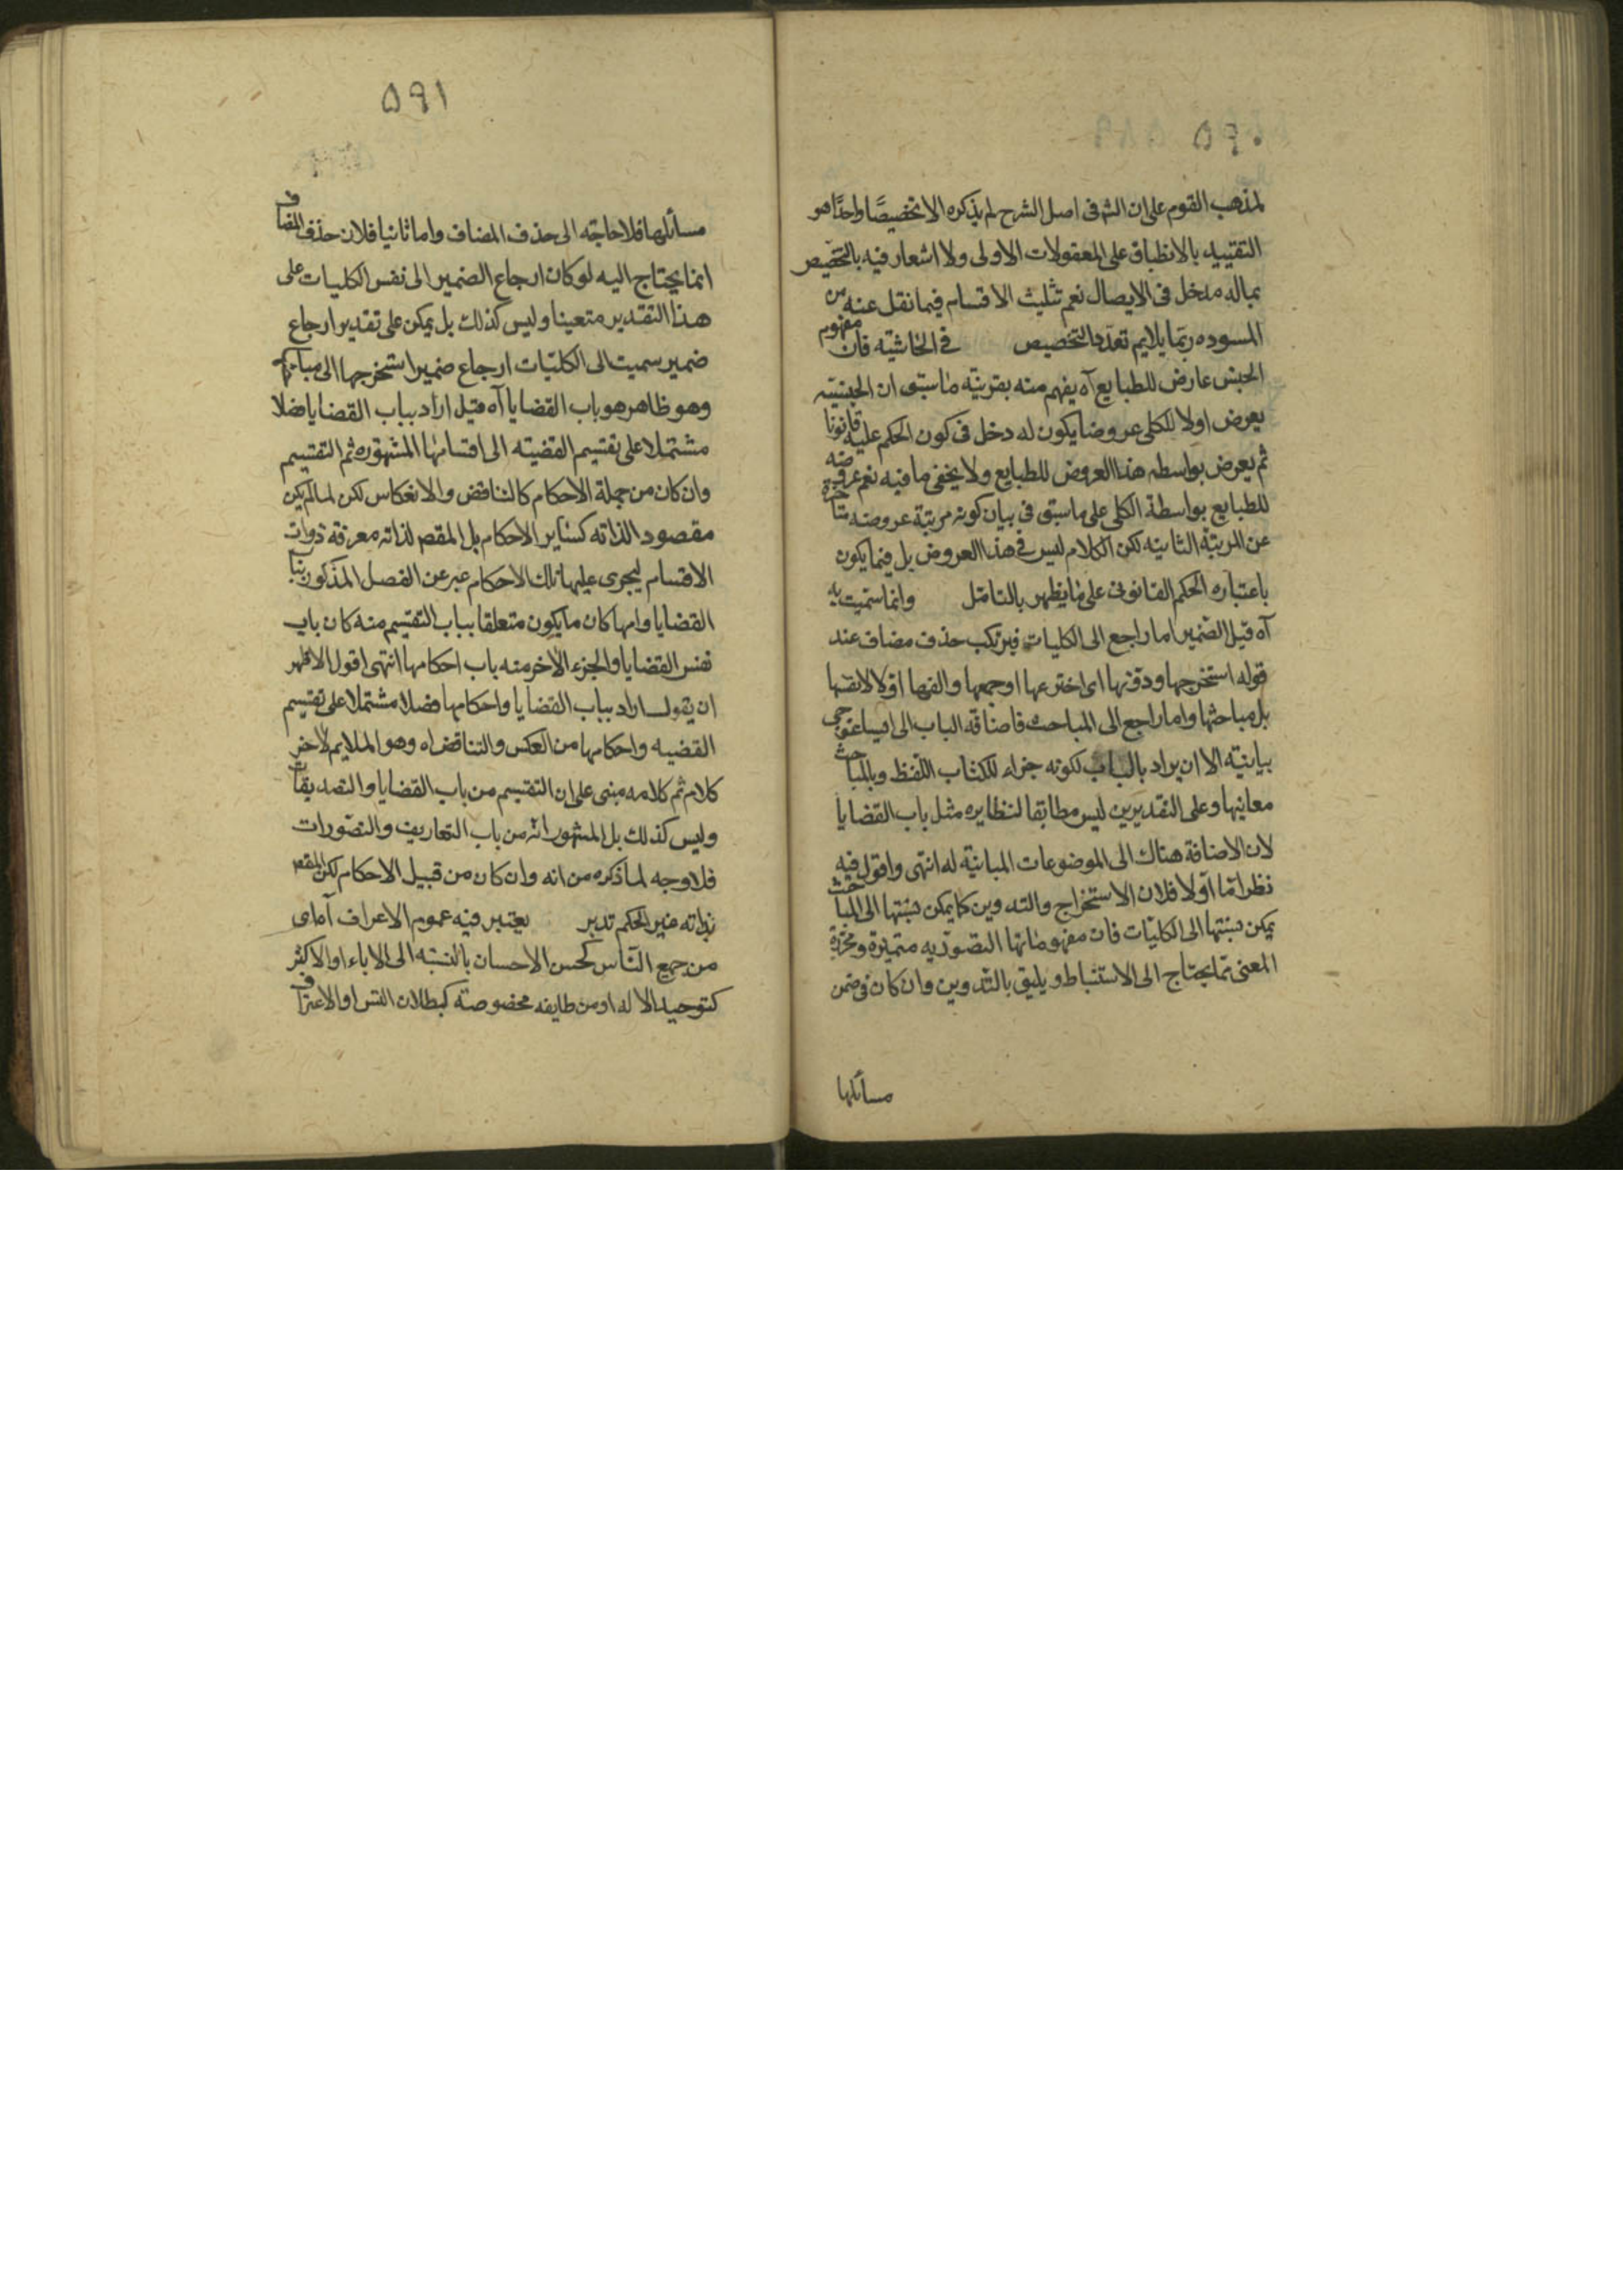 ٥٩٠
لمذهب القوم على ان الشه فى اصل الشرح لم يذكره الا تخصيصًا واحدًا هو
التقييد بالانطباق على المعقولات الاولى ولا اشعار فيه بالتخصيص
بماله مدخل فى الايصال نعم تثليث الاقسام فيما نقل عنه من
المسوده ربما يلايم تعدد التخصيص فى الحاشيه فان مفهوم
الجنس عارض للطبايع آه يفهم منه بقرينة ما سبق ان الجنسيته
يعرض اولا للكلى عروضا يكون له دخل فى كون الحكم عليه قانونا
ثم يعرض بواسطه هذا العروض للطبايع ولا يخفى ما فيه نعم عروضه
للطبايع بواسطة الكلى على ما سبق فى بيان كونه مرتبة عروضه متاخرة
عن المرتبة الثانيه لكن الكلام ليس فى هذا العروض بل فيما يكون
باعتباره الحكم القانونى على ما يظهر بالتامّل وانما سمّيت به
آه قيل الضمير اما راجع الى الكليات فيرتكب حذف مضاف عند
قوله استخرجها ودوّنها اى اخترعها او جمعها والفها اوّلا لانفسها
بل مباحثها واما راجع الى المباحث فاضافة الباب الى ايساغوجى
بيانيته الا ان يراد بالباب لكونه جزاء للكتاب اللفظ وبالمباحث
معانيها وعلى التقديرين ليس مطابقا لنظايره مثل باب القضايا
لان الاضافة هناك الى الموضوعات المباينة له انتهى واقول فيه
نظر امّا اوّلا فلان الاستخراج والتدوين كما يمكن نسبتها الى المباحث
يمكن نسبتها الى الكليّات فان مفهوماتها التصوريه متميزة ومحرزة
المعنى مما يحتاج الى الاستنباط ويليق بالتدوين وان كان فى ضمن
مسائلها
٥٩١
مسائلها فلا حاجته الى حذف المضاف واما ثانيا فلان حذف المضاف
انما يحتاج اليه لو كان ارجاع الضمير الى نفس الكليات على
هذا التقدير متعينا وليس كذلك بل يمكن على تقدير ارجاع
ضمير سميت الى الكليّات ارجاع ضمير استخرجها الى مباحثها
وهو ظاهر هو باب القضايا آه قيل اراد بباب القضايا فصلا
مشتملا على تقسيم القضيته الى اقسامها المشهوره ثم التقسيم
وان كان من جملة الاحكام كالتناقض والانعكاس لكن لما لم يكن
مقصودا لذاته كساير الاحكام بل المقصه لذاته معرفة ذوات
الاقسام ليجرى عليها تلك الاحكام عبر عن الفصل المذكور بباب
القضايا وامها كان ما يكون متعلقا بباب التقسيم منه كان باب
نفس القضايا والجزء الاخر منه باب احكامها انتهى اقول الاظهر
ان يقول اراد بباب القضايا واحكامها فصلا مشتملا على تقسيم
القضيه واحكامها من العكس والتناقض اه وهو الملايم لاخر
كلامه ثم كلامه مبنى على ان التقسيم من باب القضايا والتصديقات
وليس كذلك بل المشهور انّه من باب التعاريف والتصورات
فلا وجه لما ذكره من انه وان كان من قبيل الاحكام لكن المقصه
بذاته غير الحكم تدبر يعتبر فيه عموم الاعراف آه اى
من جميع النّاس كحسن الاحسان بالنسبه الى الاباء او الاكثر
كتوحيد الا له او من طايفه مخصوصة كبطلان التس او الاعتراف